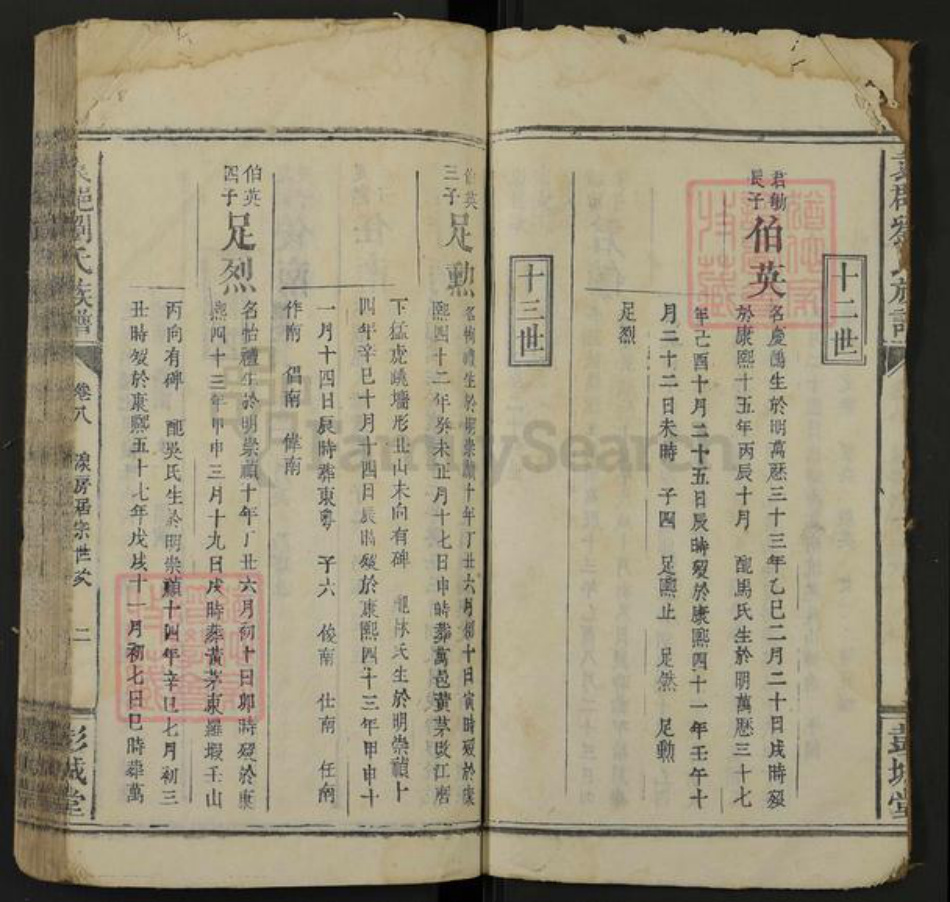 十二世
君敏
長子
伯英
名慶鴻生於明萬厯三十三年乙巳二月二十日戌時歿
於康熙十五年丙辰十月 配馬氏生於明萬厯三十七
年己酉十月二十五日辰時歿於康熙四十一年壬午十
月二十二日未時 子四 足熙止 足然 足勳
足烈
十三世
伯英
三子
足勳
生於明崇禎十年丁丑六月初十日寅時歿於康
熙四十二年癸未正月十七日申時葬萬邑黃茅
下猛虎跳墻形丑山未向有碑 配林氏生於明崇禎十
四年辛巳十月十四日辰時歿於康熙四十三年甲申十
一月十四日辰時葬東粵 子六 俊南 仕南 任南
作南 倡南 偉南
伯英
四子
足烈
名怡禮生於明崇禎十年丁丑六月初十日卯時歿於康
熙四十三年甲申三月十九日戌時葬黃茅東羅壬山
丙向有碑 配吳氏生於明崇禎十四年辛巳七月初三
丑時歿於康熙五十七年戊戌十一月初七日巳時葬萬
邑劉氏族譜
卷八
房居宗世次
二
彭城堂
彭城堂
FamilySearch